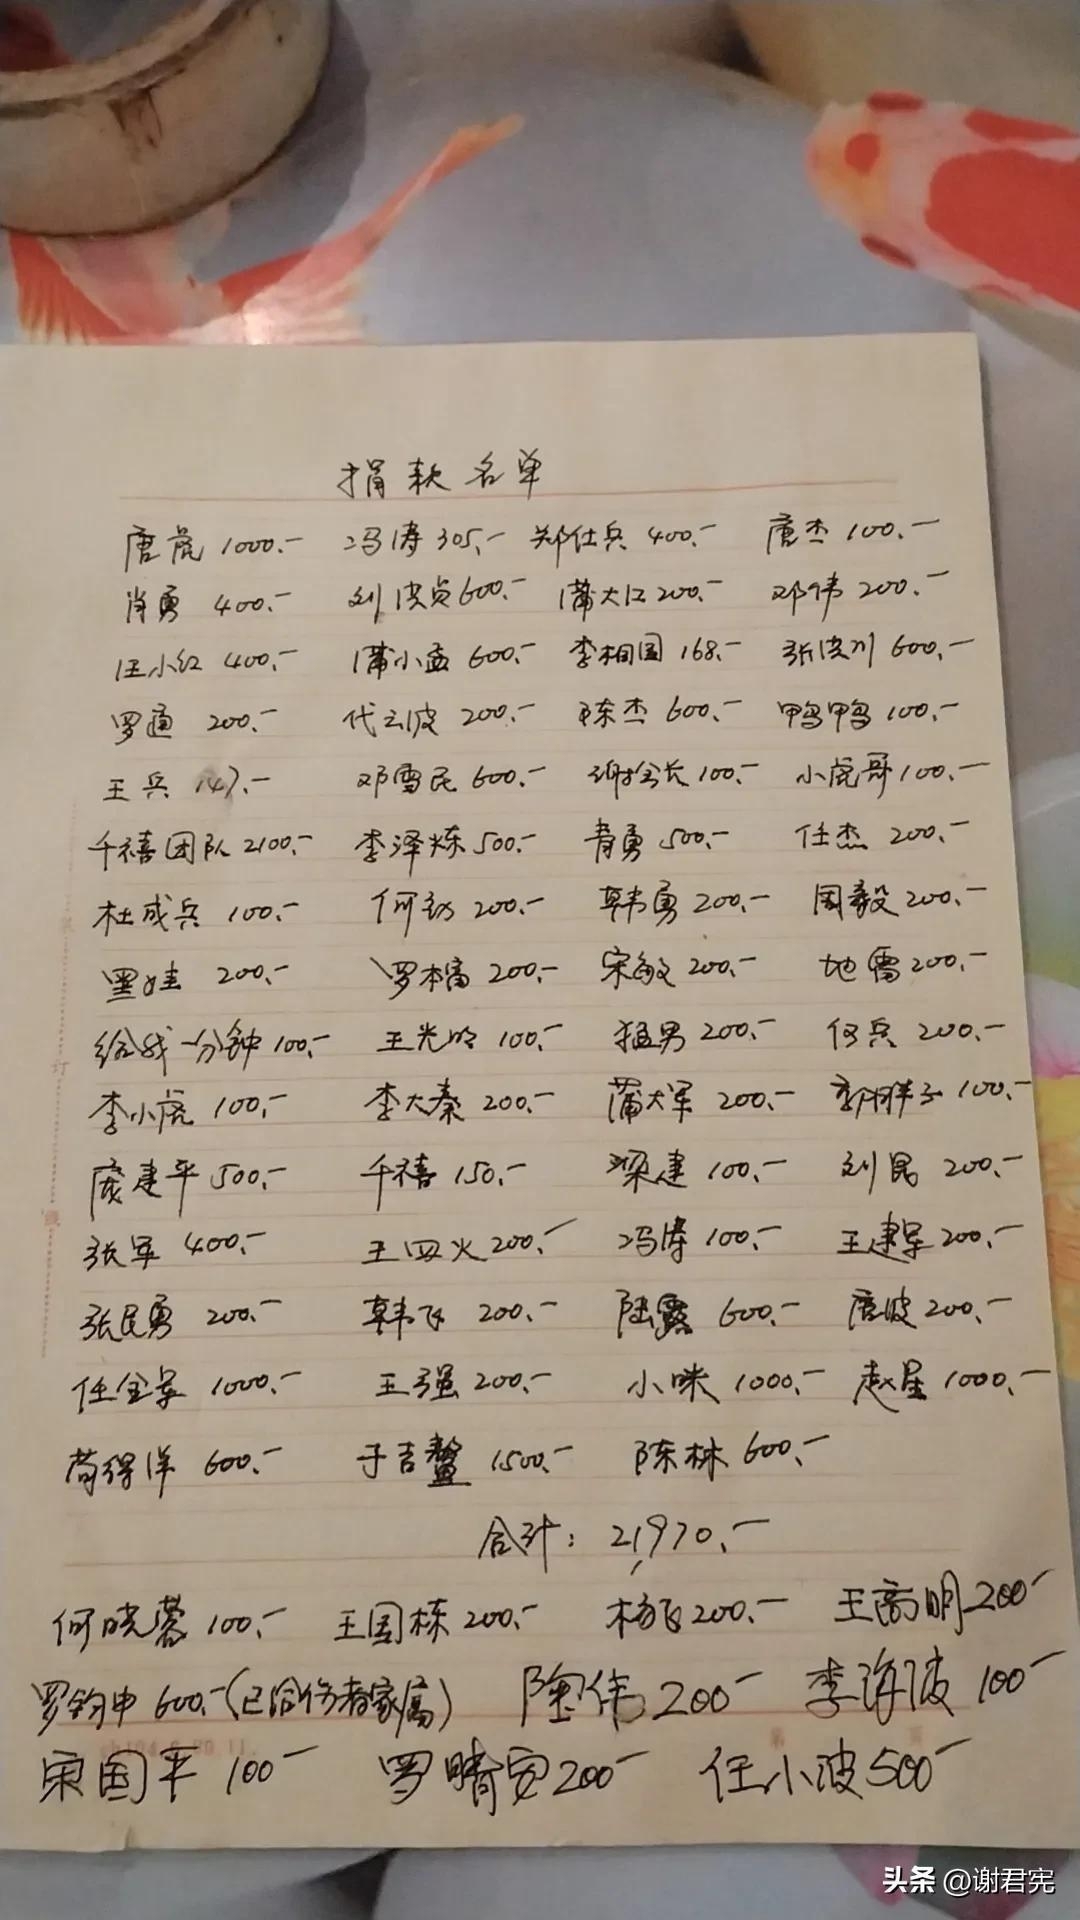 捐款名单
唐虎 1000.- 冯涛 305.- 郑仕兵 400.- 唐杰 100.-
肖勇 400.- 刘洪贞 600.- 蒲大江 200.- 邓伟 200.-
汪小红 400.- 蒲小孟 600.- 李相国 168.- 张洪川 600.-
罗通 200.- 代云波 200.- 陈杰 600.- 鸭鸭 100.-
王兵 147.- 邓雪民 600.- 谢会长 100.- 小虎哥 100.-
千禧团队 2100.- 李泽炼 500.- 青勇 500.- 任杰 200.-
杜成兵 100.- 何 200.- 韩勇 200.- 周毅 200.-
黑娃 200.- 罗本富 200.- 宋敏 200.- 地雷 200.-
给我一分钟 100.- 王光明 100.- 猛男 200.- 何兵 200.-
李小虎 100.- 李大秦 200.- 蒲大军 200.- 郭胖子 100.-
庞建平 500.- 千禧 150.- 梁建 100.- 刘民 200.-
张军 400.- 王四火 200.- 冯涛 100.- 王建军 200.-
张民勇 200.- 韩飞 200.- 陆露 600.- 唐波 200.-
任全军 1000.- 王强 200.- 小咪 1000.- 赵星 1000.-
苟得洋 600.- 于吉鳌 1500.- 陈林 600.-
合计: 21,970.-
何晓蓉 100.- 王国栋 200.- 杨飞 200.- 王高明 200-
罗钧申 600.-(已给伤者家属) 陶伟 200- 李海波 100-
宋国平 100- 罗晴安 200- 任小波 500-
订
线
头条 @谢君宪